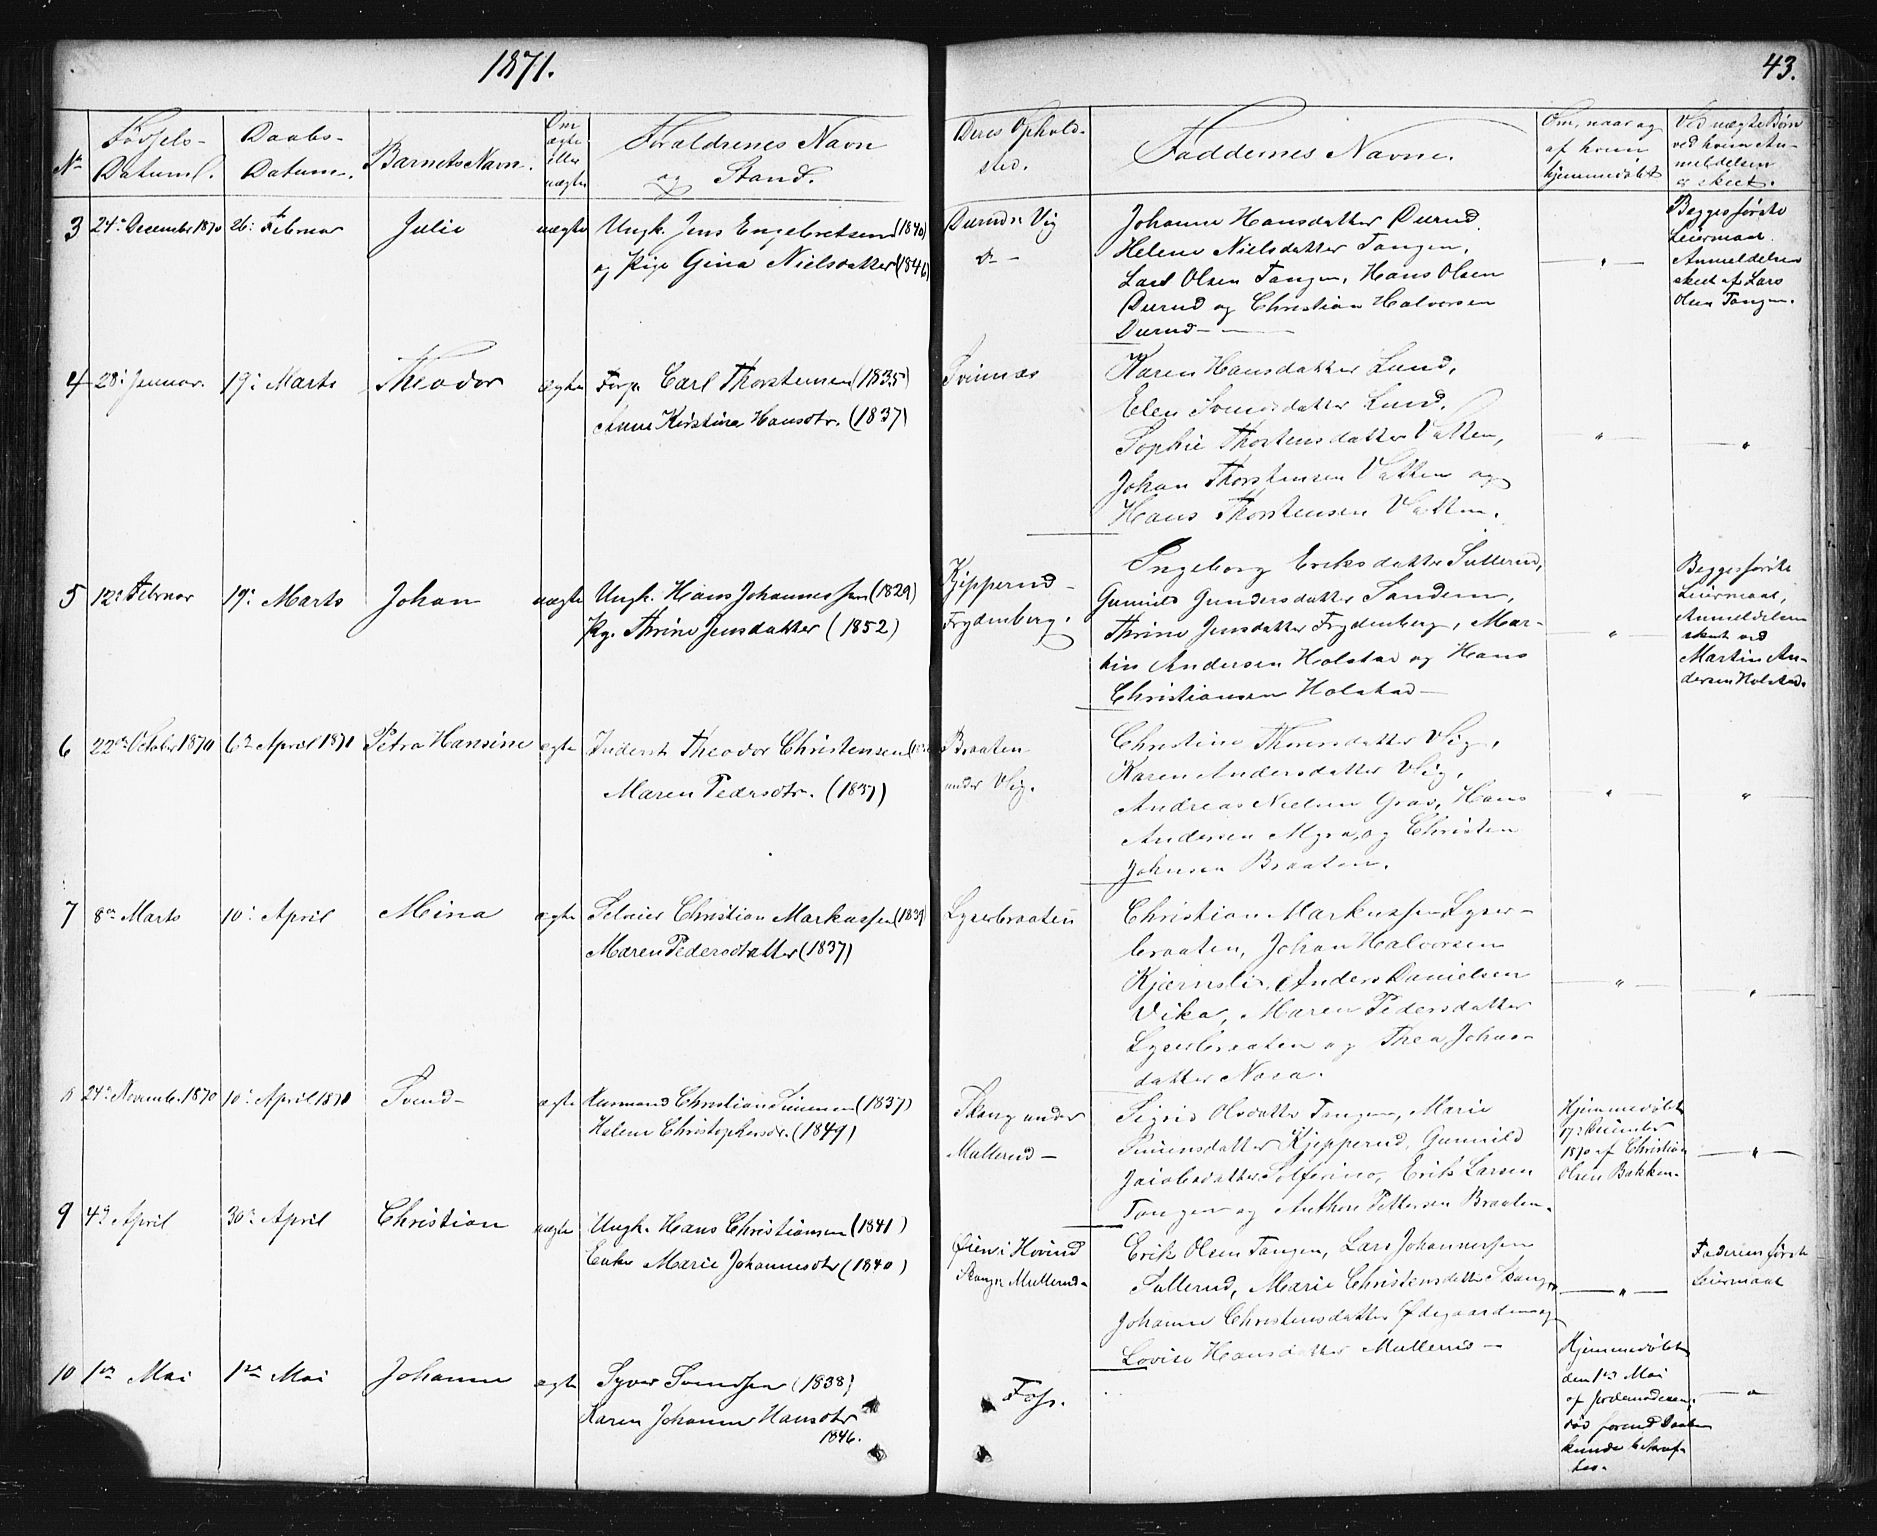 1871.
43.
No
Fødsels-
Datum.
Daabs-
Datum.
Barnets Navn.
Om
ægte
eller
uægte
Forældrenes Navn
og Stand.
Deres Ophold-
sted.
Faddernes Navne.
Om, naar og
af hvem
hjemmedøbt
Ved uægte Børn
ved hvem An-
meldelsen
er skeet.
3 24de December 1870 26de Februar Julie uægte
Ungk. Jens Engebretsen (1840)
og Pige Gina Nielsdatter (1846)
Durud Vig
Do -
Johanne Hansdatter Durud,
Helene Nielsdatter Tangen,
Lars Olsen Tangen, Hans Olsen
Durud og Christian Halvorsen
Durud —
Begges første
Leiermaal.
Anmeldelsen
skeet af Lars
Olsen Tangen.
4 28de Januar. 19de Marts Theodor ægte
Forp. Carl Thorstensen (1835)
Anne Kirstine Hansdtr. (1837)
Svinnæs
Karen Hansdatter Lund,
Elen Svensdatter Lund,
Sophie Thorstensdatter Vatten,
Johan Thorstensen Vatten og
Hans Thorstensen Vatten.
5 12te Februar 19de Marts Johan uægte
Ungk. Hans Johannessen (1829)
Pg. Thrine Jensdatter (1852)
Kjepperud -
Frydenberg.
Ingeborg Eriksdatter Sullerud,
Gunnild Gundersdatter Sanden,
Thrine Jensdatter Frydenberg, Mar-
tin Andersen Holstad og Hans
Christiansen Holstad —
Begges første
Leiermaal,
Anmeldelsen
skeet ved
Martin An-
dersen Holstad.
6 22de October 1870 6te April 1871 Petra Hansine ægte
Inderst Theodor Christensen
Maren Pedersdtr. (1837)
Braaten
under Vig.
Christine Thoresdatter Vlig,
Karen Andersdatter Vlig,
Andreas Nielsen Gras, Hans
Andersen Myra, og Christen
Johnsen Braaten.
7 8de Marts 10de April Mina ægte
Selveier Christian Markussen (1839)
Maren Pedersdatter (1837)
Lyserbraaten
Christian Markussen Lyser-
braaten, Johan Halvorsen
Kjærnsli, Anders Danielsen
Vika, Maren Pedersdatter
Lyserbraaten og Thea Johans-
datter Nasa.
8 24de November 1870 10de April 1871 Svend — ægte
Husmand Christian Simensen (1837)
Helene Christophersdr. (1849)
Skang under
Mullerud —
Sigrid Olsdatter Tangen, Marie
Simensdatter Kjepperud, Gunnild
Jacobsdatter Solferino, Erik Larsen
Tangen og Anthon Pettersen Braaten.
Hjemmedøbt
17de December
1870 af Christian
Olsen Bakken.
9 4de April 30te April Christian uægte
Ungk. Hans Christiansen (1841)
Enke Marie Johannesdtr (1840)
Øien i Hovind
Skang Mullerud
Erik Olsen Tangen, Lars Johannessen
Sullerud, Marie Christensdatter Skang,
Johanne Christensdatter Ødegaarden og
Lovise Hansdatter Mullerud —
Faderens første
Leiermaal
10 1ste Mai 1ste Mai Johanne ægte
Syver Svendsen (1838)
Karen Johanne Hansdtr
1846.
Foss.
Hjemmedøbt
den 1ste Mai
af Jordemoderen,
død førend Daaben
kunde bekræf-
tes.